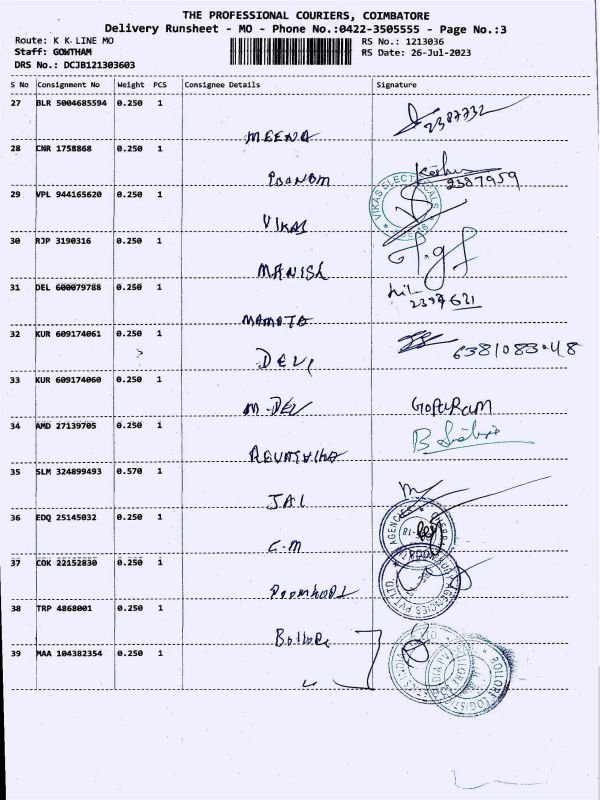 THE PROFESSIONAL COURIERS, COIMBATORE
Delivery Runsheet - MO - Phone No.:0422-3505555 - Page No.:3
Route: K K LINE MO RS No.: 1213036
Staff: GOWTHAM RS Date: 26-Jul-2023
DRS No.: DCJB121303603
S No Consignment No Weight PCS Consignee Details Signature
27 BLR 5004685594 0.250 1
MEENA 2387732
28 CNR 1758868 0.250 1
2387959
29 VPL 944165620 0.250 1
VIKAS VIKAS ELECTRICALS
30 RJP 3190316 0.250 1
MANISH
31 DEL 600079788 0.250 1
MAMOTA
32 KUR 609174061 0.250 1
DEVI 6381083048
33 KUR 609174060 0.250 1
M-DEV GOPURAM
34 AMD 27139705 0.250 1
35 SLM 324899493 0.570 1
JAI
36 EDQ 25145032 0.250 1
G-M AGENCIES
37 COK 22152830 0.250 1
AGENCIES PVT LTD
38 TRP 4868001 0.250 1
Bollore
39 MAA 104382354 0.250 1
BOLLORE LOGISTICS